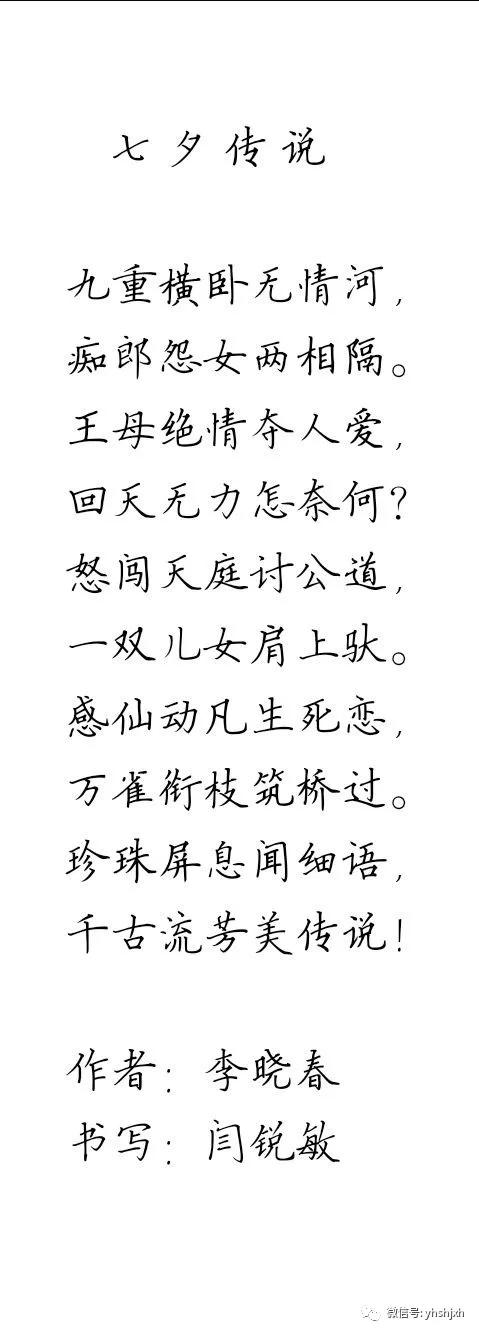 七夕传说
九重横卧无情河，
痴郎怨女两相隔。
王母绝情夺人爱，
回天无力怎奈何？
怒闯天庭讨公道，
一双儿女肩上驮。
感仙动凡生死恋，
万雀衔枝筑桥过。
珍珠屏息闻细语，
千古流芳美传说！
作者：李晓春
书写：闫锐敏
微信号: yhshjxh